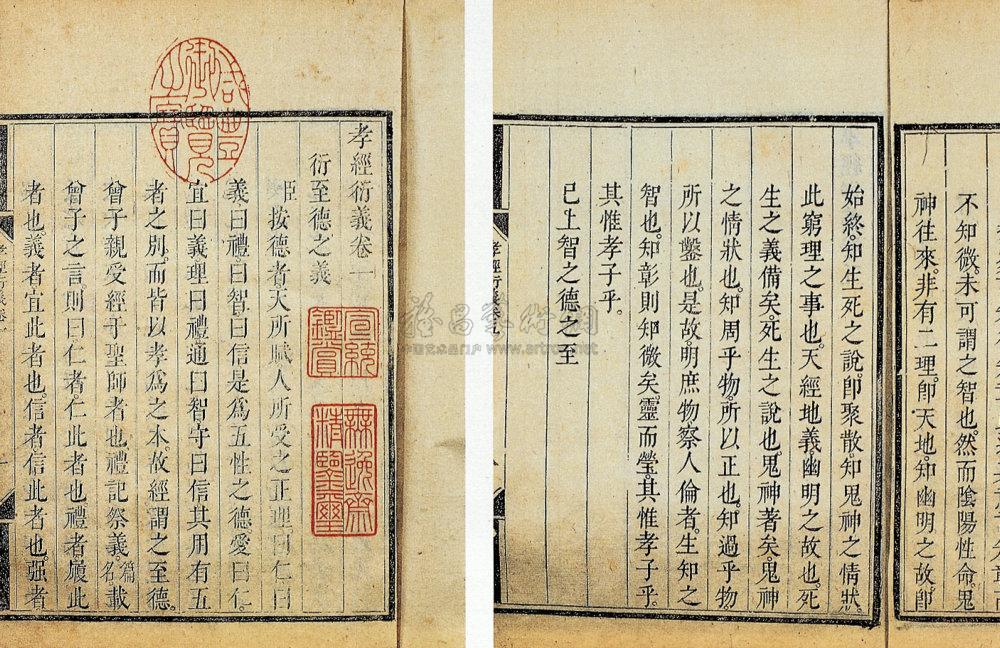 孝經衍義卷一
衍至德之義
臣按德者天所賦人所受之正理曰仁曰
義曰禮曰智曰信是為五性之德愛曰仁。
宜曰義理曰禮通曰智守曰信其用有五
者之別。而皆以孝為之本。故經謂之至德。
曾子親受經于聖師者也。禮記祭義篇名載
曾子之言。則曰仁者。仁此者也。禮者。履此
者也。義者宜此者也。信者信此者也。强者
咸豐御覽之寶
宣統鑑賞
無逸齋精鑒璽
不知微。未可謂之智也。然而陰陽性命。鬼
神往來。非有二理。卽天地。知幽明之故。卽
始終知生死之說。卽聚散。知鬼神之情狀。
此窮理之事也。天經地義。幽明之故也。死
生之義備矣。死生之說也。鬼神著矣。鬼神
之情狀也。知周乎物。所以正也。知過乎物
所以鑿也。是故。明庶物察人倫者。生知之
智也。知彰則知微矣。靈而瑩。其惟孝子乎。
其惟孝子乎。
已上智之德之至